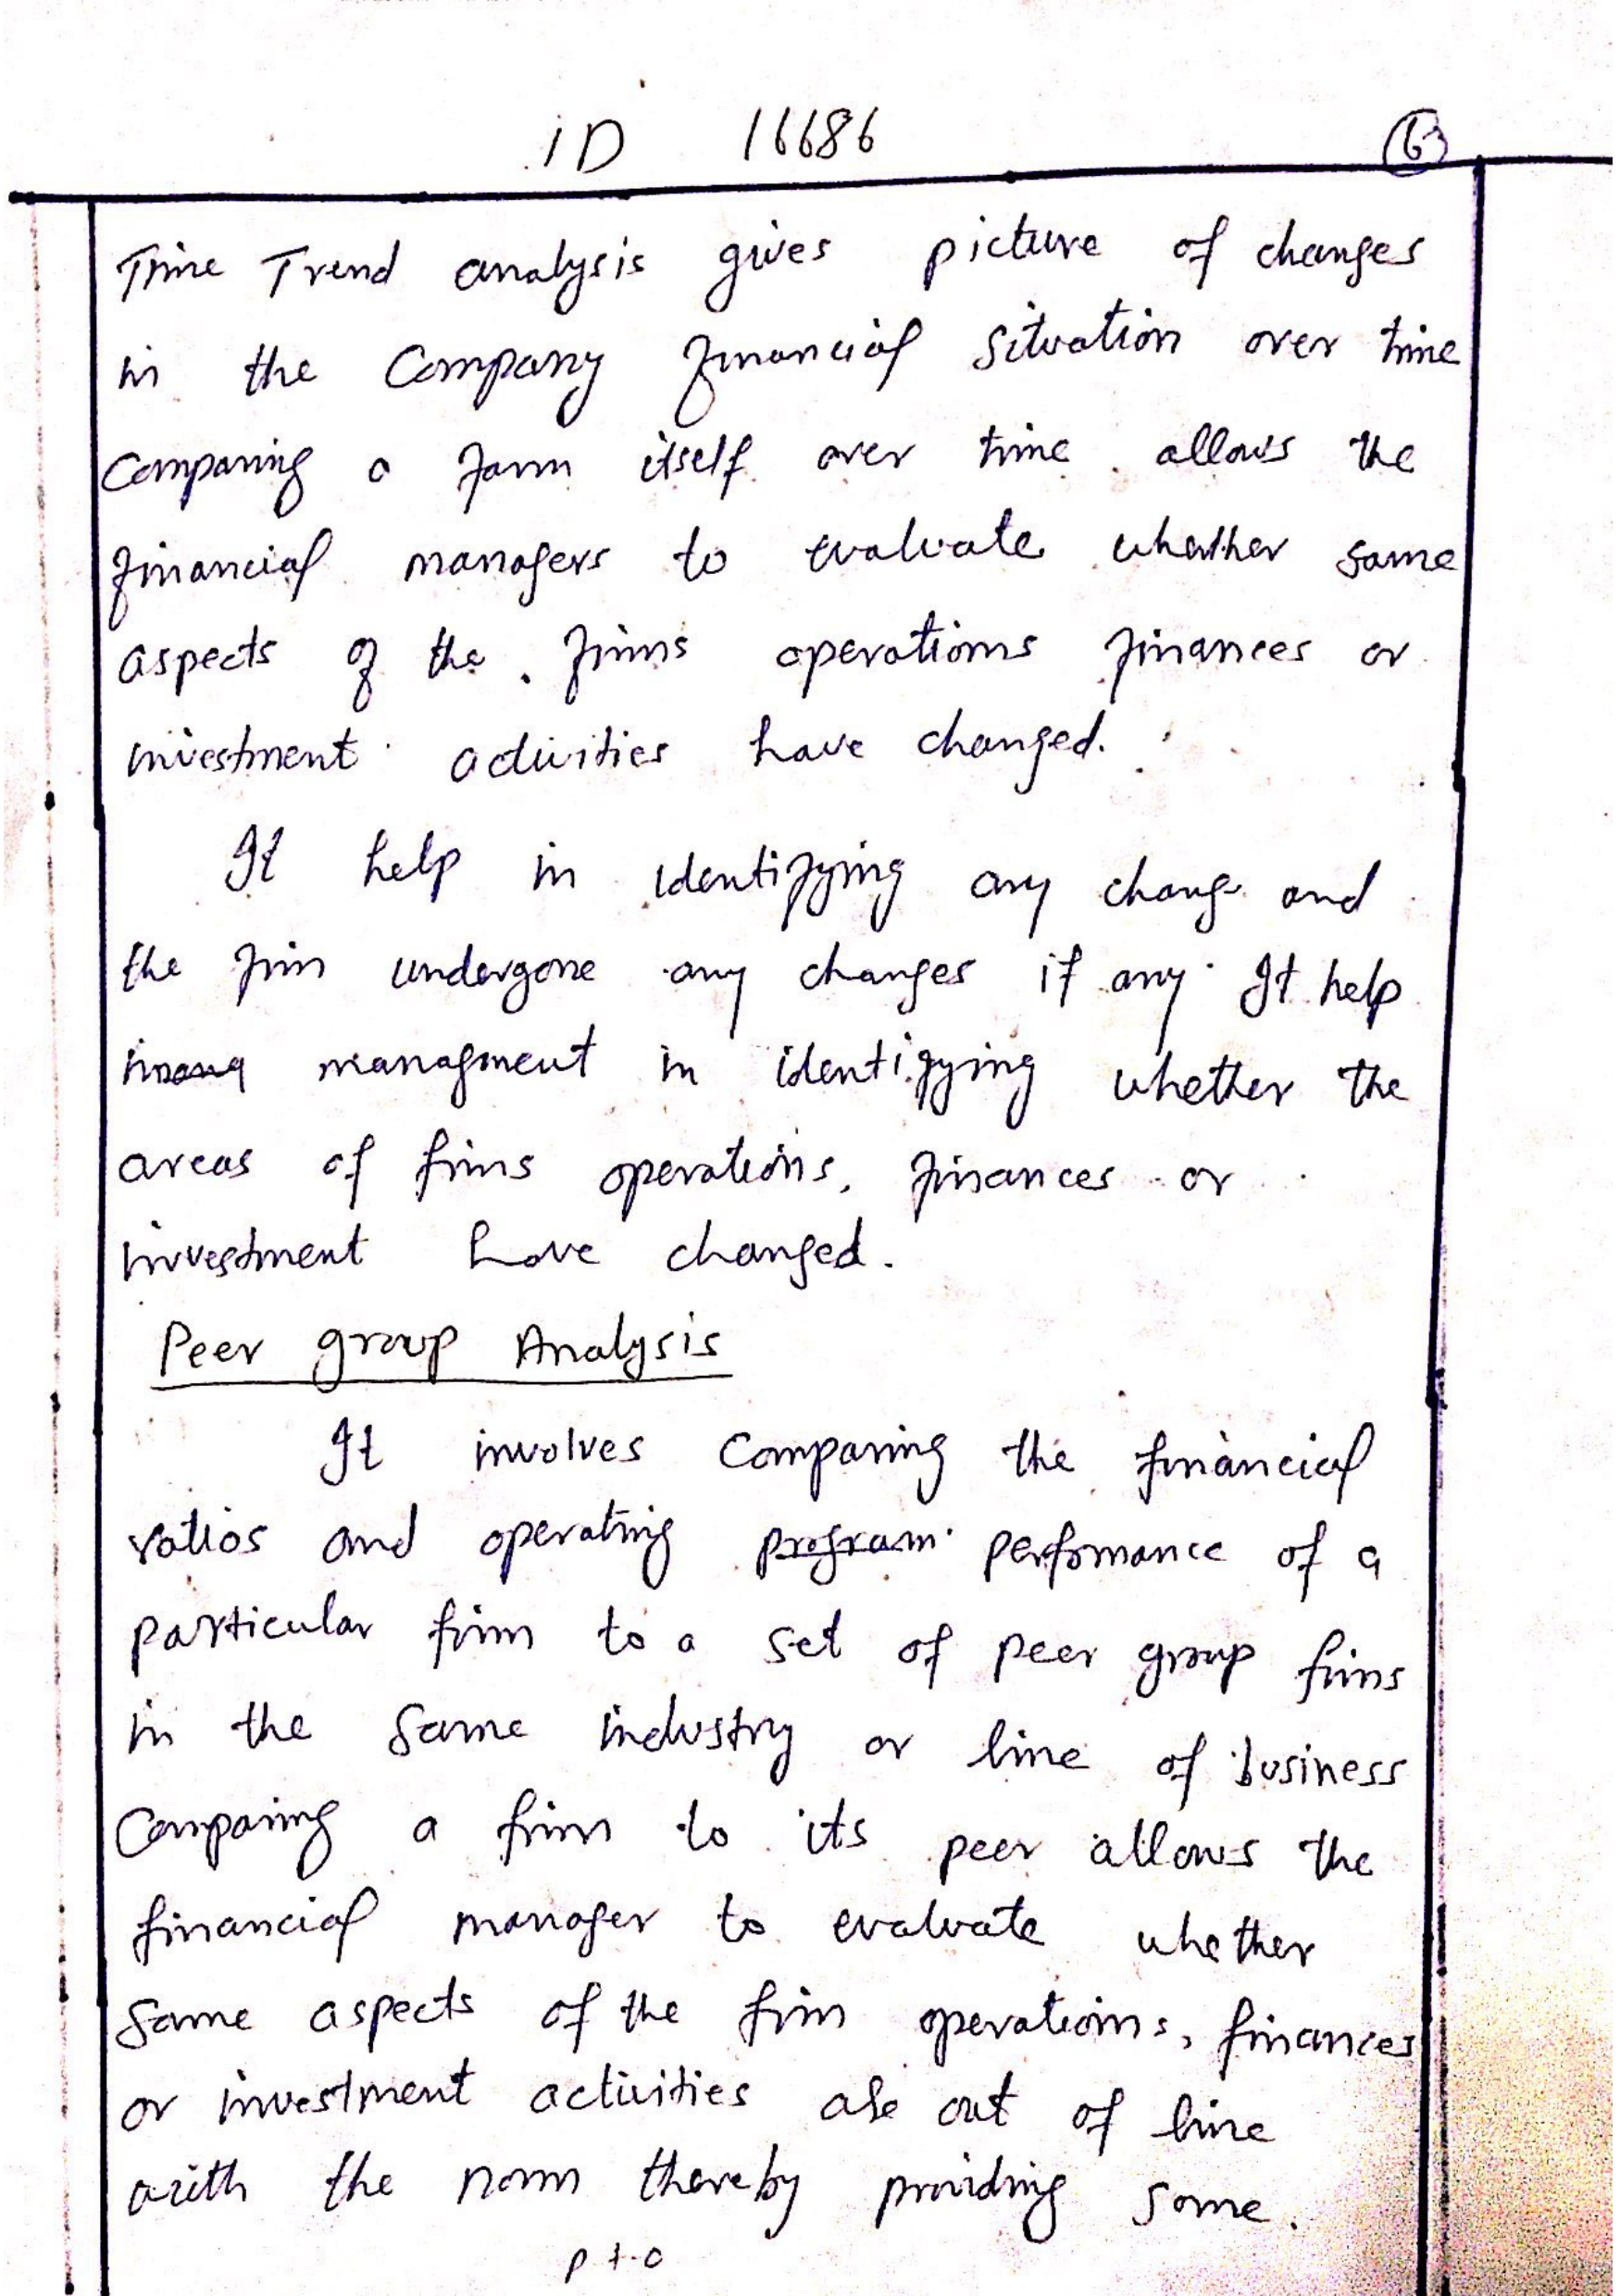 ID 16686 6
Time Trend analysis gives picture of changes
in the Company financial situation over time
Comparing a farm itself over time allows the
financial managers to evaluate whether some
aspects of the firms operations finances or
investment activities have changed.
It help in identifying any change and
the firm undergone any changes if any. It help
management in identifying whether the
areas of firms operations, finances or
investment have changed.
Peer group Analysis
It involves Comparing the financial
ratios and operating program performance of a
particular firm to a set of peer group firms
in the same industry or line of business
Comparing a firm to its peer allows the
financial manager to evaluate whether
some aspects of the firm operations, finances
or investment activities are out of line
with the norm thereby providing some.
P t.o